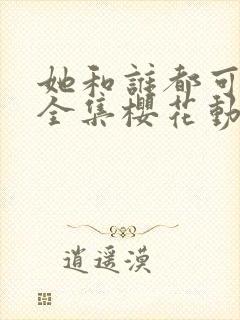 她和誰都可
全集櫻花動
逍遥漠